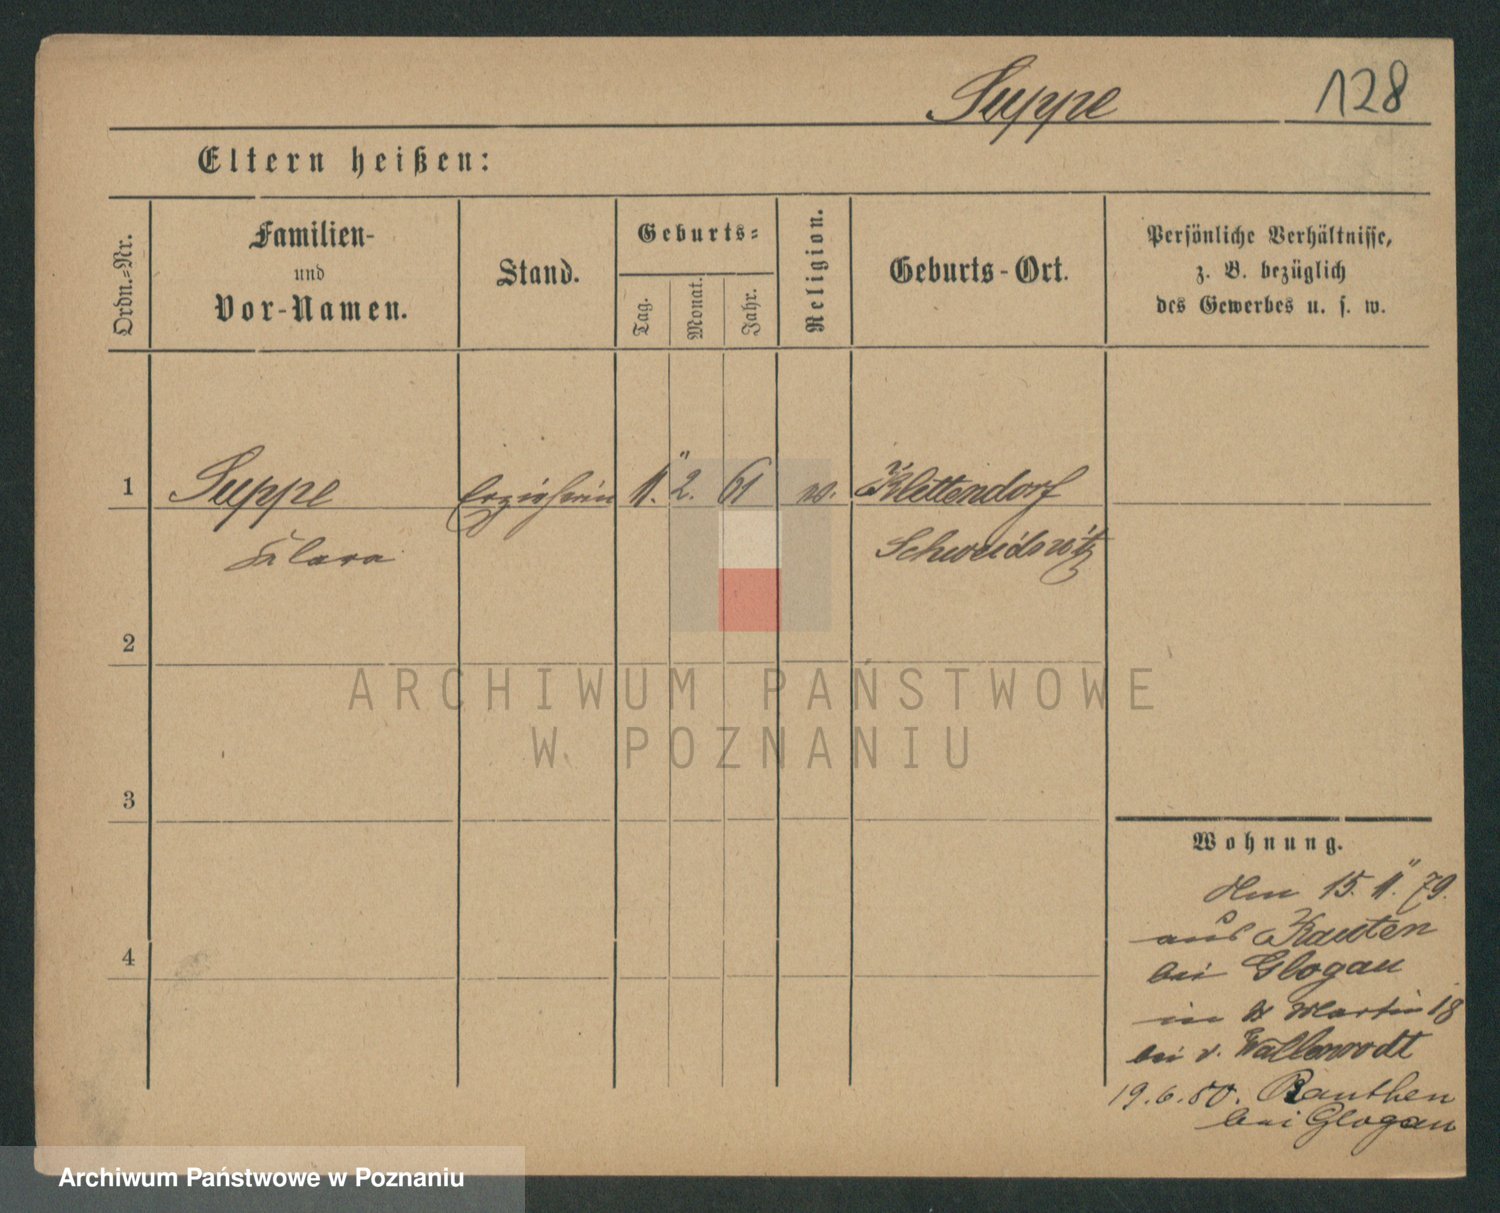 Suppe 128
Eltern heißen:
Ordn.-Nr.
Familien-
und
Vor-Namen.
Stand.
Geburts-
Tag.
Monat.
Jahr.
Religion.
Geburts-Ort.
Persönliche Verhältnisse,
z. B. bezüglich
des Gewerbes u. s. w.
1 Suppe Erzieherin 11. 2. 61 Klettendorf
Klara Schweidnitz
2
ARCHIWUM PAŃSTWOWE
W POZNANIU
3
Wohnung.
den 15. 11. 79.
aus Rauten
bei Glogau
4
in St Martin 18
bei v. Wallenrodt
19.6.80. Rauthen
bei Glogau
Archiwum Państwowe w Poznaniu